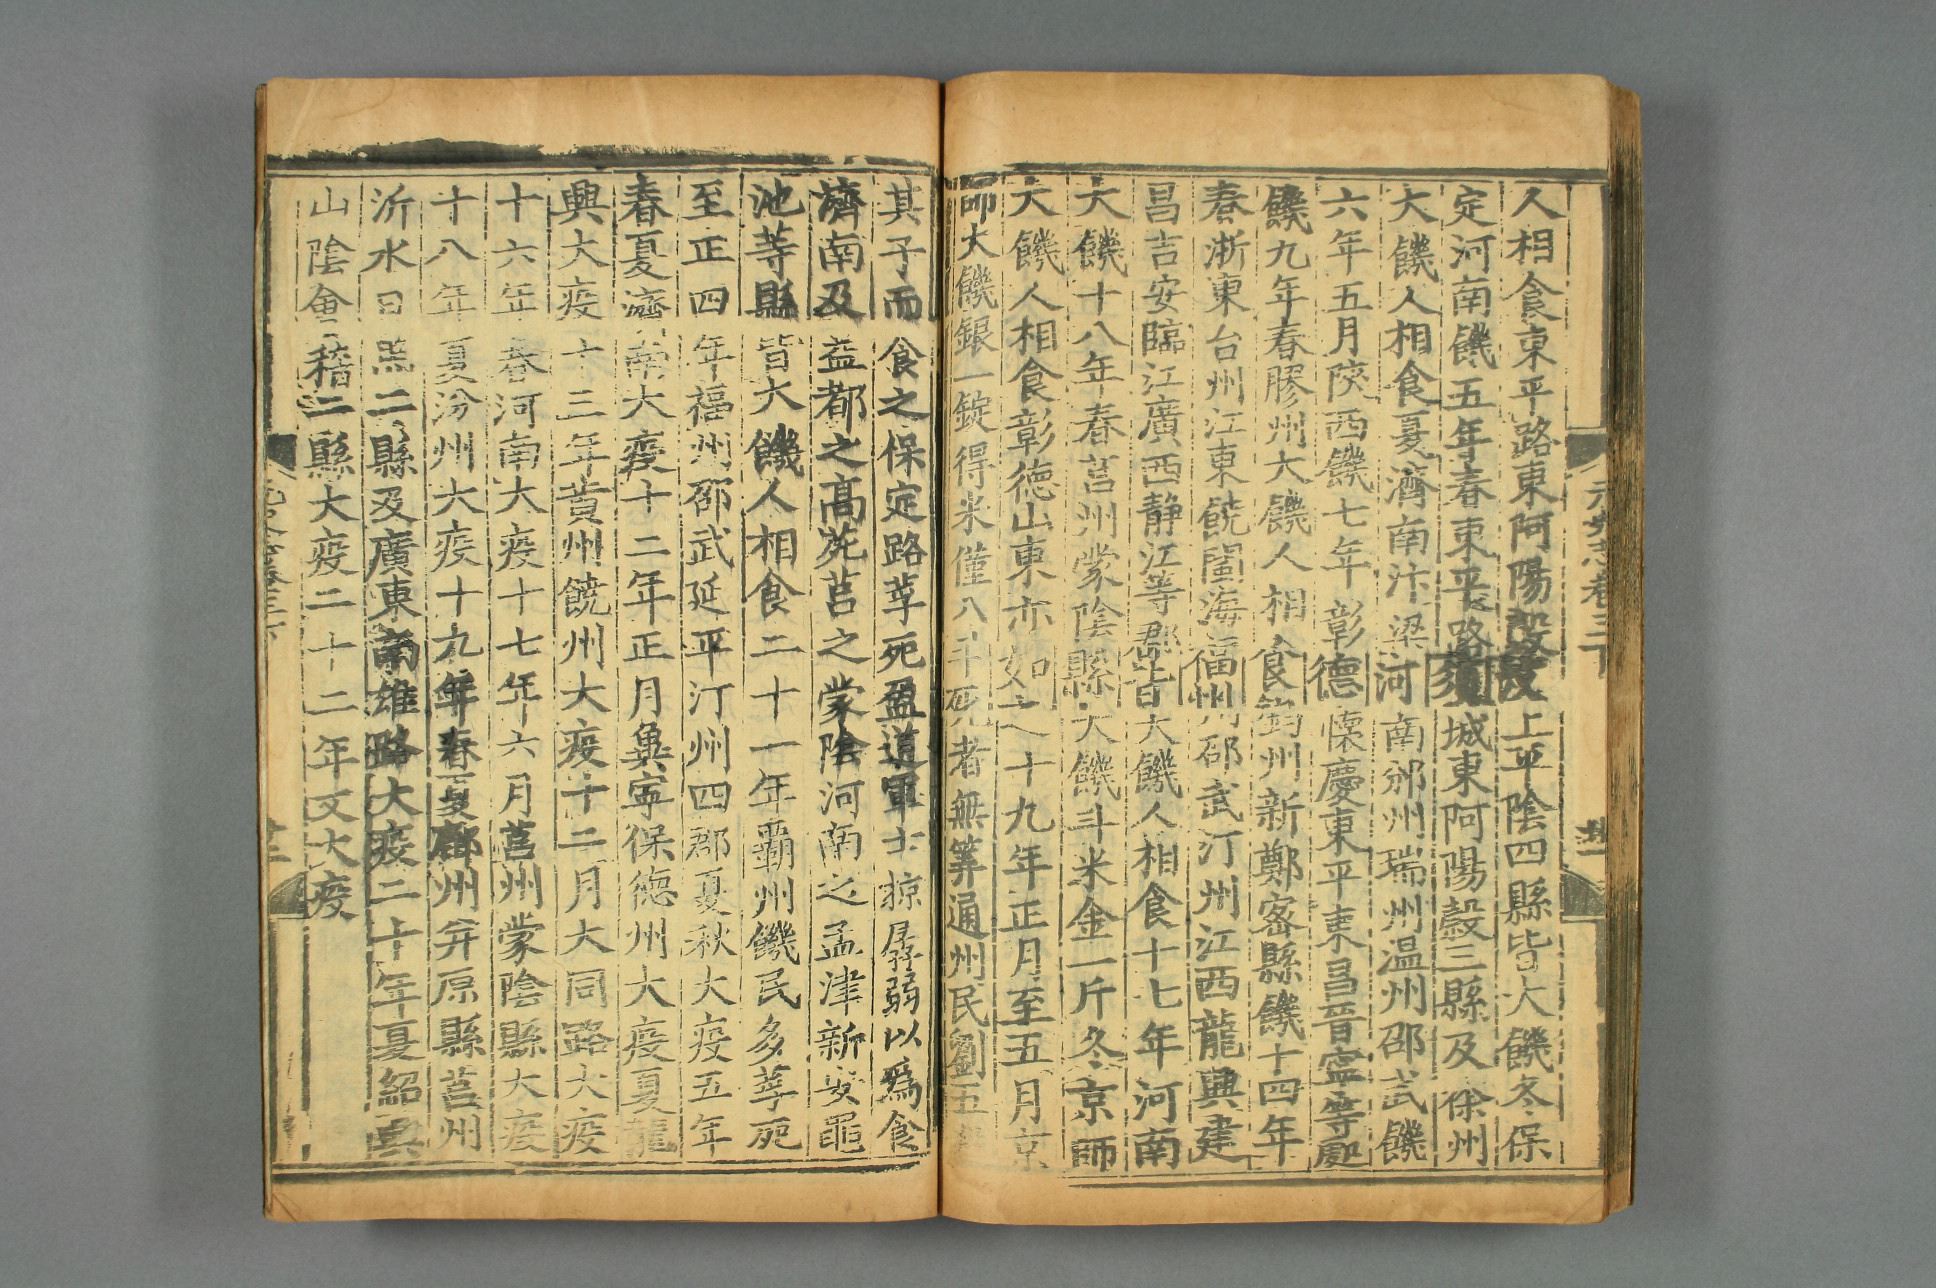 人相食東平路東阿陽穀 上平陰四縣皆大饑冬保
定河南饑五年春東平路須城東阿陽穀三縣及徐州
大饑人相食夏濟南汴梁河南邠州瑞州温州邵武饑
六年五月陝西饑七年彰德懷慶東平東昌晉寧等處
饑九年春膠州大饑人相食鈞州新鄭密縣饑十四年
春浙東台州江東饒閩海福州邵武汀州江西龍興建
昌吉安臨江廣西静江等郡皆大饑人相食十七年河南
大饑十八年春莒州蒙陰縣大饑斗米金一斤冬京師
大饑人相食彰德山東亦如之十九年正月至五月京
師大饑銀一錠得米僅八斗死者無筭通州民劉五
其子而食之保定路莩死盈道軍士掠孱弱以爲食
濟南及益都之高苑莒之蒙陰河南之孟津新安黽
池等縣皆大饑人相食二十一年霸州饑民多莩死
至正四年福州邵武延平汀州四郡夏秋大疫五年
春夏濟南大疫十二年正月冀寧保德州大疫夏龍
興大疫十三年黄州饒州大疫十二月大同路大疫
十六年春河南大疫十七年六月莒州蒙陰縣大疫
十八年夏汾州大疫十九年春夏鄜州并原縣莒州
沂水日照二縣及廣東南雄路大疫二十年夏紹興
山陰會稽二縣大疫二十二年又大疫